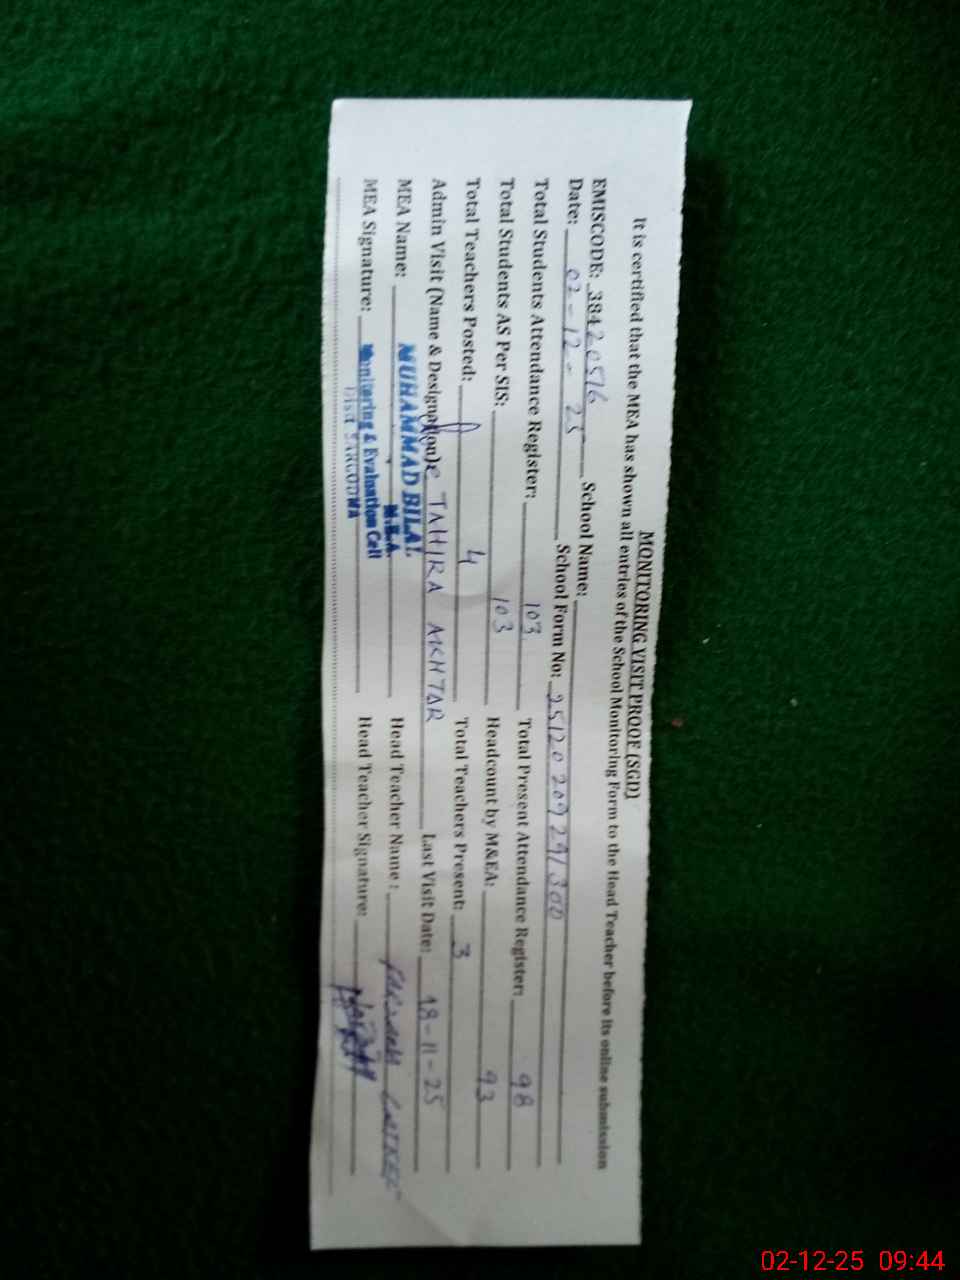 MONITORING VISIT PROOF (SGD)
It is certified that the MEA has shown all entries of the School Monitoring Form to the Head Teacher before its online submission
EMISCODE: 38420516 School Name:
Date: 02-12-25 School Form No: 25120209291300
Total Students Attendance Register: 103 Total Present Attendance Register: 98
Total Students AS Per SIS: 103 Headcount by M&EA: 93
Total Teachers Posted: 4 Total Teachers Present: 3
Admin Visit (Name & Designation): TAHIRA AKHTAR Last Visit Date: 18-11-25
MEA Name: MUHAMMAD BILAL Head Teacher Name:
M.E.A.
MEA Signature: Monitoring & Evaluation Cell Head Teacher Signature:
Distt SARGODHA
02-12-25 09:44